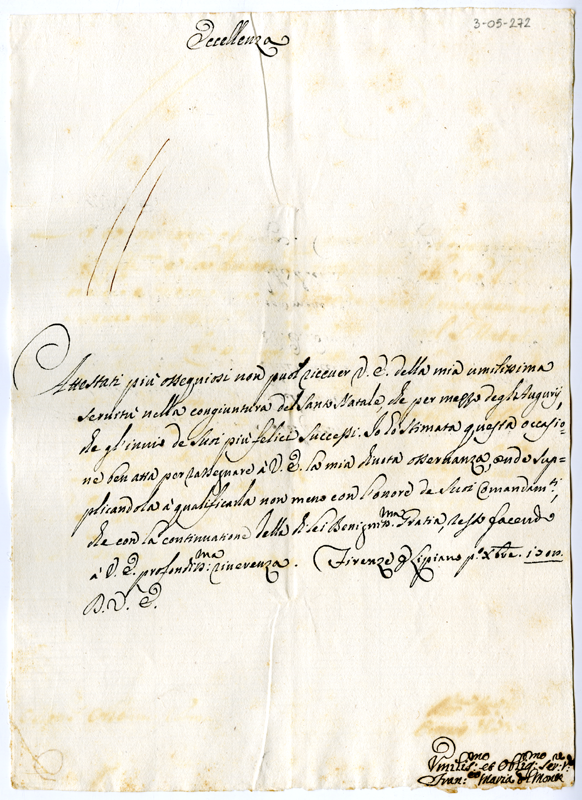 3-05-272
Eccellenza
Attestati più ossequiosi non puol ricever V. E. della mia umilissima
servitù nella congiuntura del Santo Natale, che per mezzo degl'Augurij,
che gl'invio de Suoi più felici successi. Io hò stimata questa occasio=
ne ben atta per rassegnare à V. E. la mia divota osservanza, onde sup=
plicandola à qualificarla non meno con l'onore de Suoi Comandam:ti,
che con la continuatione della di lei Benigniss:ma Gratia, resto facendo
à V. E. profondiss:ma riverenza. Firenze p. Lipiano p:o Xbre.
D. V. E.
Umiliss:mo et Obblig:mo Ser:re
Fran:co Maria del Monte